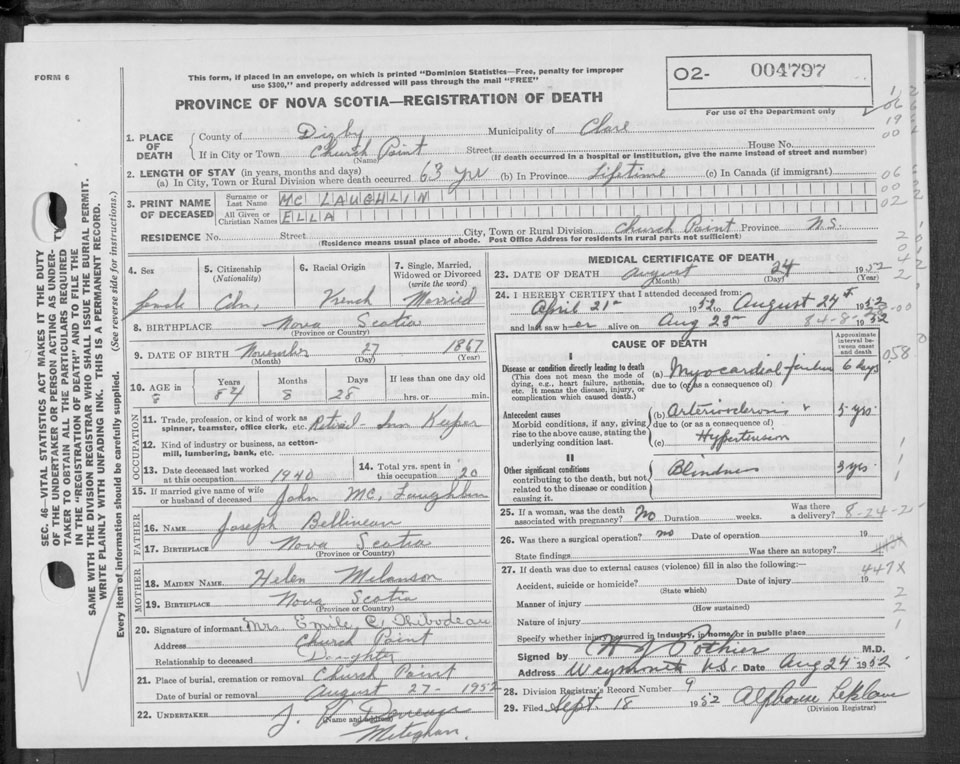 FORM 6
This form, if placed in an envelope, on which is printed "Dominion Statistics—Free, penalty for improper
use $300," and properly addressed will pass through the mail "FREE"
O2- 004797
For use of the Department only
PROVINCE OF NOVA SCOTIA—REGISTRATION OF DEATH
1. PLACE OF DEATH County of Digby Municipality of Clare
If in City or Town Church Point Street House No.
(Name) (If death occurred in a hospital or institution, give the name instead of street and number)
2. LENGTH OF STAY (in years, months and days)
(a) In City, Town or Rural Division where death occurred 63 yrs (b) In Province Lifetime (c) In Canada (if immigrant)
3. PRINT NAME OF DECEASED Surname or Last Name MC LAUGHLIN
All Given or Christian Names ELLA
RESIDENCE No. Street City, Town or Rural Division Church Point Province N.S.
(Residence means usual place of abode. Post Office Address for residents in rural parts not sufficient)
SEC. 46—VITAL STATISTICS ACT MAKES IT THE DUTY
OF THE UNDERTAKER OR PERSON ACTING AS UNDER-
TAKER TO OBTAIN ALL THE PARTICULARS REQUIRED
IN THE "REGISTRATION OF DEATH" AND TO FILE THE
SAME WITH THE DIVISION REGISTRAR WHO SHALL ISSUE THE BURIAL PERMIT.
WRITE PLAINLY WITH UNFADING INK. THIS IS A PERMANENT RECORD.
Every item of information should be carefully supplied. (See reverse side for instructions.)
4. Sex female
5. Citizenship (Nationality) Cdn.
6. Racial Origin French
7. Single, Married, Widowed or Divorced (write the word) Married
8. BIRTHPLACE Nova Scotia
(Province or Country)
9. DATE OF BIRTH November 27 1867
(Month) (Day) (Year)
10. AGE in Years 84 Months 8 Days 28 If less than one day old
hrs. or min.
OCCUPATION
11. Trade, profession, or kind of work as
spinner, teamster, office clerk, etc. Retired - Inn Keeper
12. Kind of industry or business, as cotton-
mill, lumbering, bank, etc.
13. Date deceased last worked
at this occupation 1940
14. Total yrs. spent in
this occupation 20
15. If married give name of wife
or husband of deceased John Mc. Laughlin
FATHER
16. NAME Joseph Bellineau
17. BIRTHPLACE Nova Scotia
(Province or Country)
MOTHER
18. MAIDEN NAME Helen Melanson
19. BIRTHPLACE Nova Scotia
(Province or Country)
20. Signature of informant Mrs. Emile C. Thibodeau
Address Church Point
Relationship to deceased Daughter
21. Place of burial, cremation or removal Church Point
Date of burial or removal August 27 - 1952
22. UNDERTAKER J. V. Deveau
(Name and address)
Meteghan.
MEDICAL CERTIFICATE OF DEATH
23. DATE OF DEATH August 24 1952
(Month) (Day) (Year)
24. I HEREBY CERTIFY that I attended deceased from:
April 21st 1952 to August 24th 1952
and last saw her alive on Aug 23rd 1952
CAUSE OF DEATH
Approximate interval between onset and death
I
Disease or condition directly leading to death
(This does not mean the mode of
dying, e.g., heart failure, asthenia,
etc. It means the disease, injury, or
complication which caused death.)
(a) Myocardial failure 6 days
due to (or as a consequence of)
Antecedent causes
Morbid conditions, if any, giving
rise to the above cause, stating the
underlying condition last.
(b) Arteriosclerosis 5 yrs.
due to (or as a consequence of)
(c) Hypertension
II
Other significant conditions
contributing to the death, but not
related to the disease or condition
causing it.
Blindness 3 yrs.
25. If a woman, was the death
associated with pregnancy? No Duration weeks. Was there
a delivery? 8-24-2
26. Was there a surgical operation? no Date of operation 19
State findings Was there an autopsy?
27. If death was due to external causes (violence) fill in also the following:
447X
Accident, suicide or homicide? Date of injury 19
(State which)
Manner of injury
(How sustained)
Nature of injury
Specify whether injury occurred in industry, in home, or in public place
Signed by Pothier M.D.
Address Weymouth N.S. Date Aug 24 1952
28. Division Registrar's Record Number 9
29. Filed Sept 18 1952 Alphonse LeBlanc
(Division Registrar)